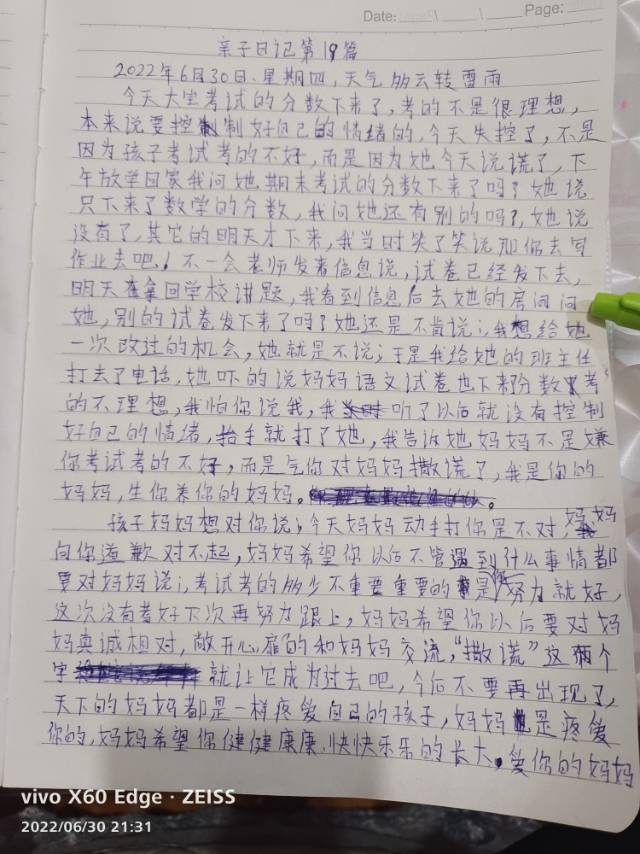 Date: Page:
亲子日记第19篇
2022年6月30日.星期四,天气多云转雷雨
今天大宝考试的分数下来了,考的不是很理想,
本来说要控制好自己的情绪的,今天失控了,不是
因为孩子考试考的不好,而是因为她今天说谎了,下
午放学回家我问她期末考试的分数下来了吗?她说
只下来了数学的分数,我问她还有别的吗?,她说
没有了,其它的明天才下来,我当时笑了笑说那你去写
作业去吧!不一会老师发来信息说,试卷已经发下去,
明天在拿回学校讲题,我看到信息后去她的房间问
她,别的试卷发下来了吗?她还是不肯说;我想给她
一次改过的机会,她就是不说;于是我给她的班主任
打去了电话,她吓的说妈妈语文试卷也下来分数考
的不理想,我怕你说我,我听了以后就没有控制
好自己的情绪,抬手就打了她,我告诉她妈妈不是嫌
你考试考的不好,而是气你对妈妈撒谎了,我是你的
妈妈,生你养你的妈妈。
孩子妈妈想对你说;今天妈妈动手打你是不对,妈妈
向你道歉对不起,妈妈希望你以后不管遇到什么事情都
要对妈妈说;考试考的多少不重要重要的是你努力就好,
这次没有考好下次再努力跟上,妈妈希望你以后要对妈
妈真诚相对,敞开心扉的和妈妈交流,"撒谎"这两个
字就让它成为过去吧,今后不要再出现了,
天下的妈妈都是一样疼爱自己的孩子,妈妈也是疼爱
你的,妈妈希望你健健康康,快快乐乐的长大。爱你的妈妈
vivo X60 Edge · ZEISS
2022/06/30 21:31